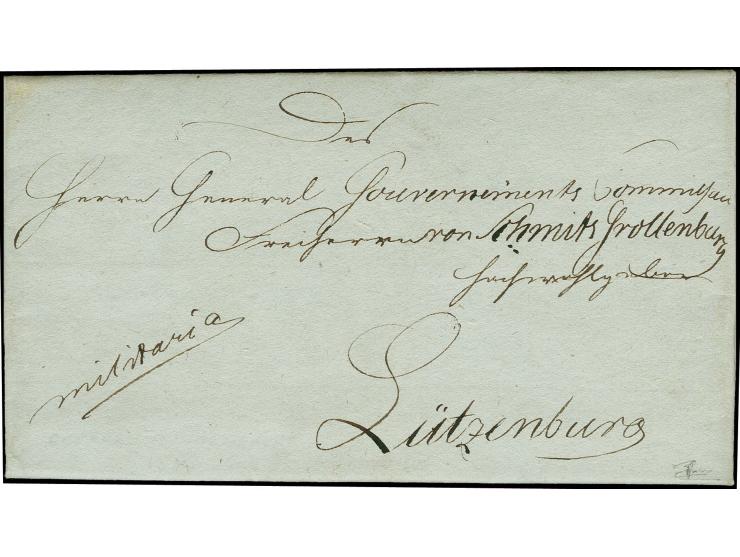 Des
Herrn General Gouvernements Commissair
Freiherrn von Schmits Grollenburg
Hochwohlgebor
militaria
Lützenburg